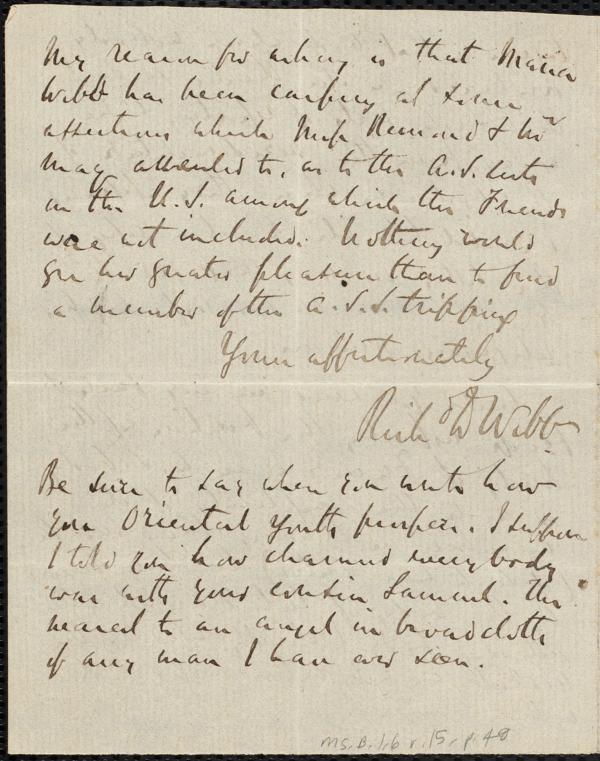 My reason for asking is that Maria
Webb has been carping at some
assertions which Miss Remond & Mr
May attended to, as to the A.S. sects
in the U.S. among which the Friends
were not included. Nothing would
give her greater pleasure than to find
a member of the A.S.S. tripping
Yours affectionately
Rich D Webb
Be sure to say when you write how
your Oriental youths prosper. I suppose
I told you how charmed everybody
was with your cousin Samuel. The
nearest to an angel in broadcloth
of any man I have ever seen.
MS. B. 1. 6 v. 15. p. 48